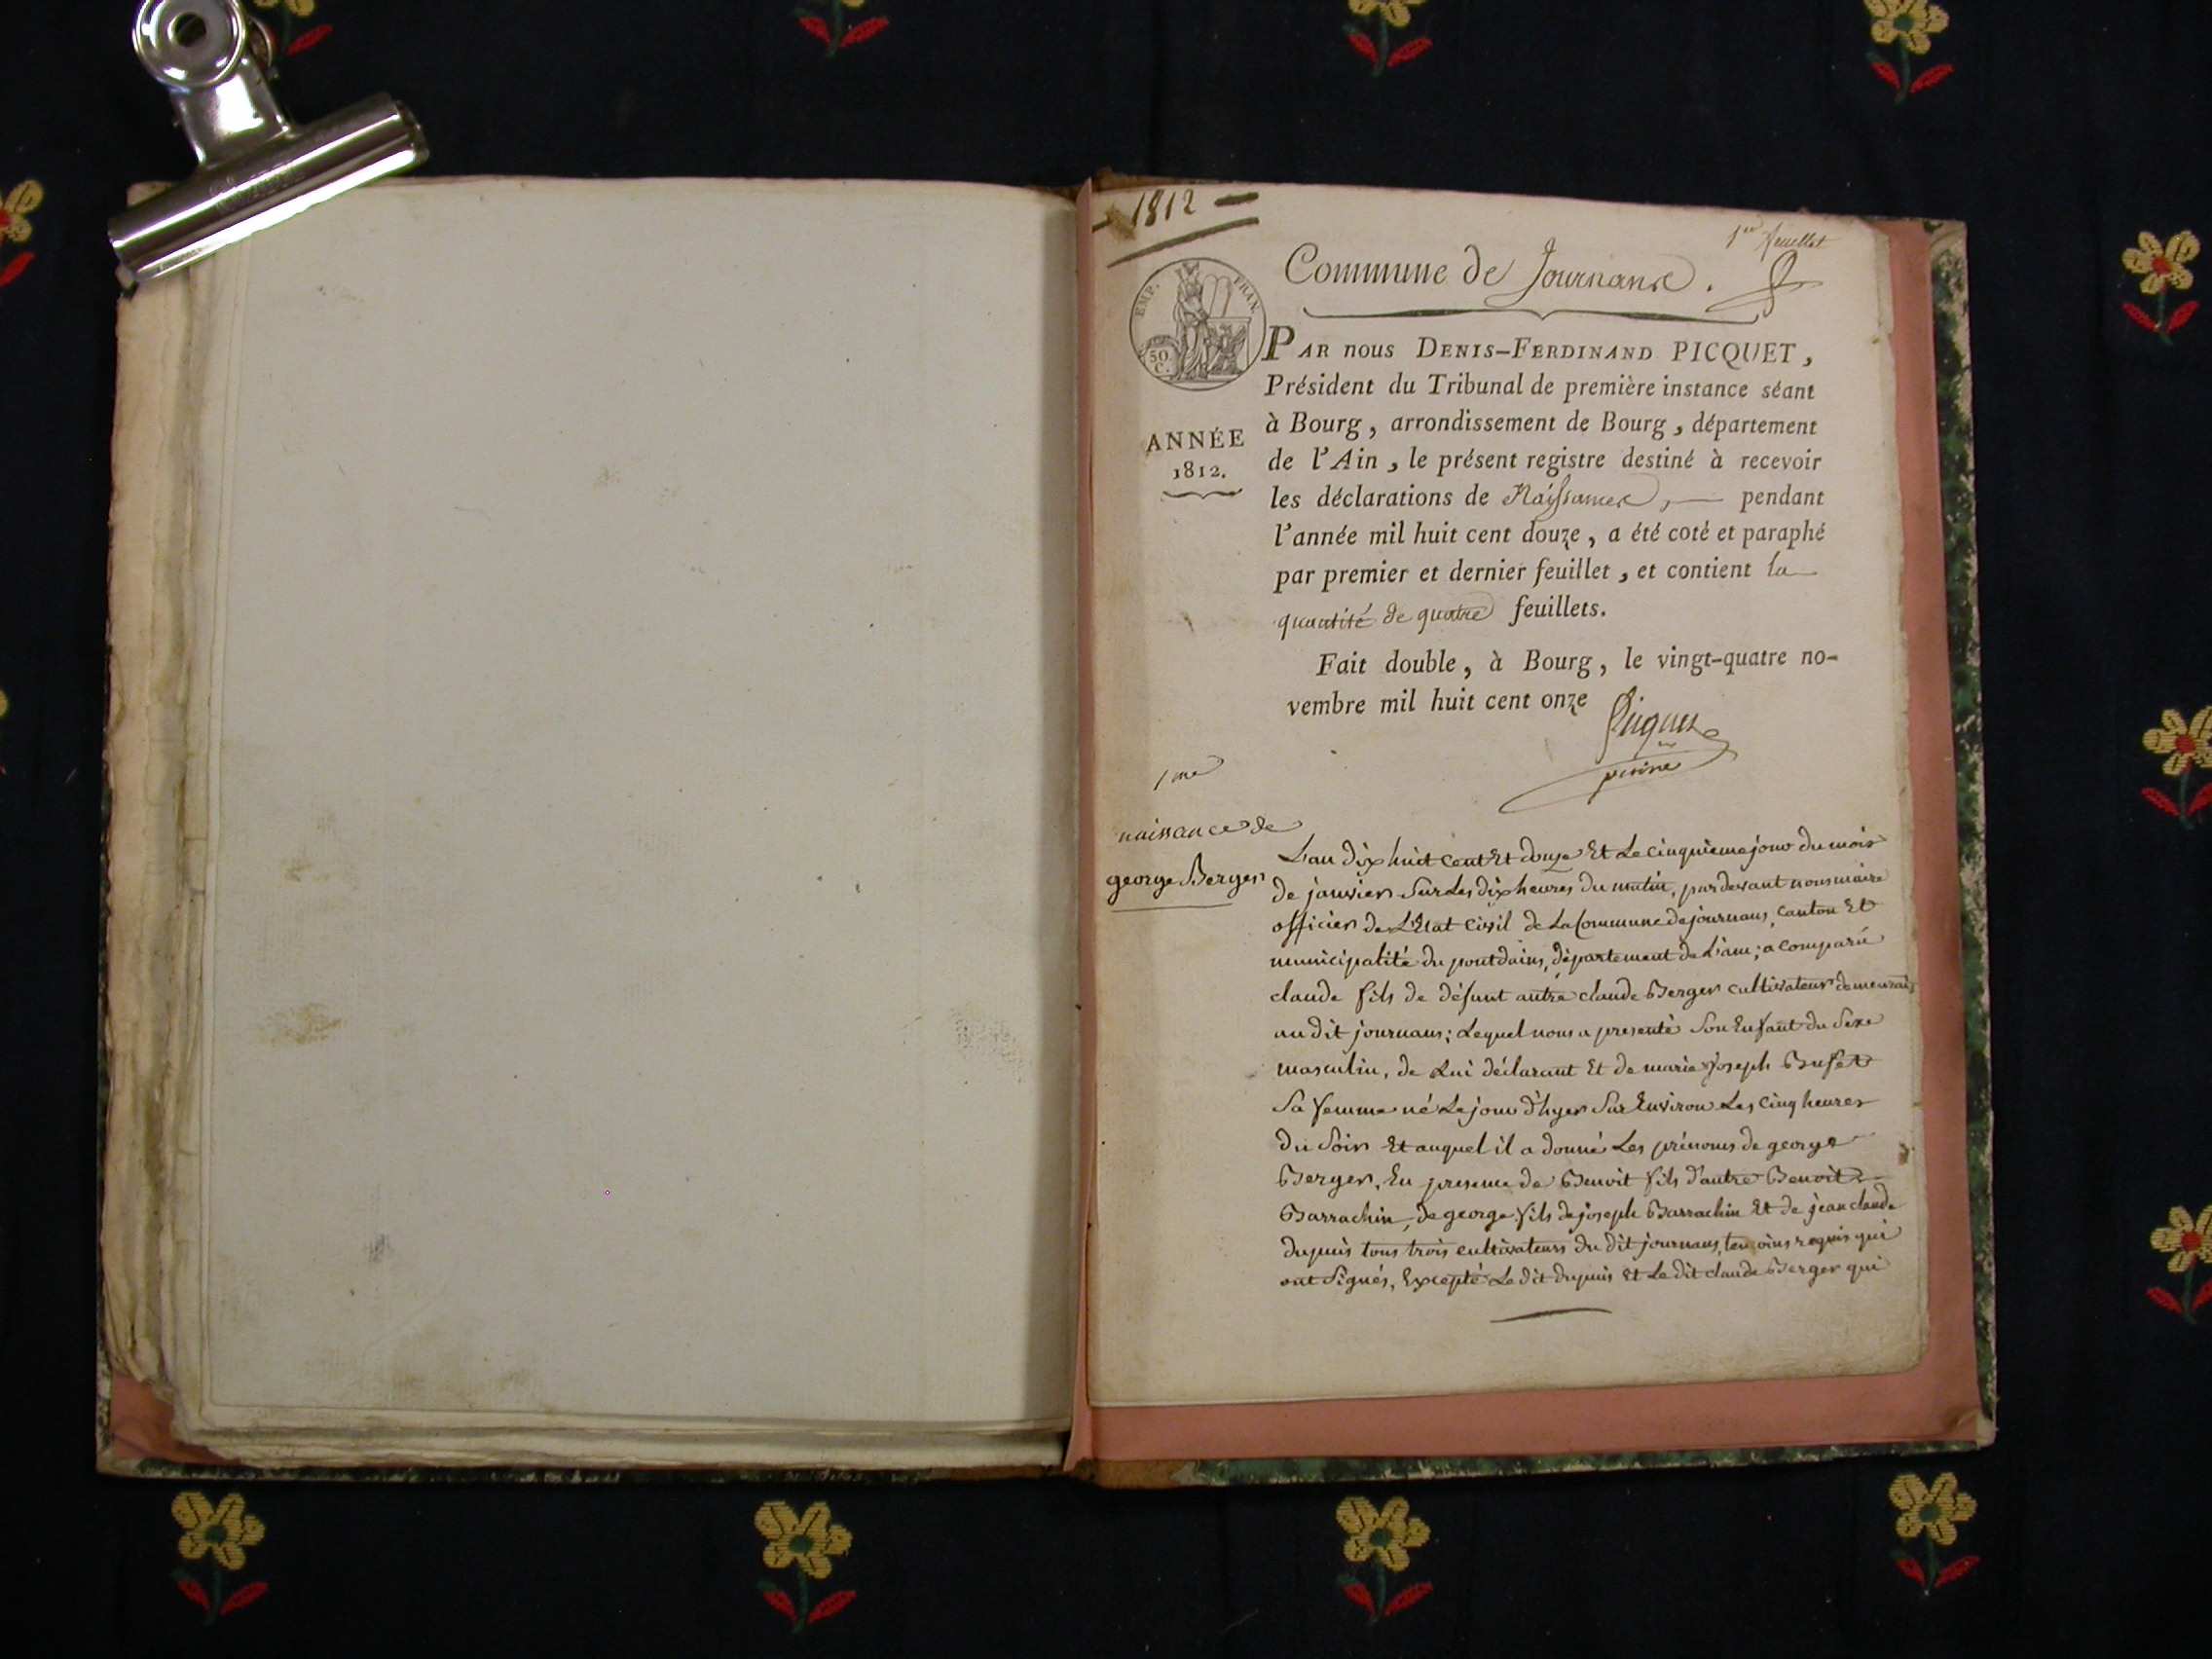 1812
1er feuillet
Commune de Journans.
EMP. FRAN.
50 C.
PAR nous DENIS-FERDINAND PICQUET,
Président du Tribunal de première instance séant
à Bourg, arrondissement de Bourg, département
de l'Ain, le présent registre destiné à recevoir
les déclarations de Naissances, pendant
l'année mil huit cent douze, a été coté et paraphé
par premier et dernier feuillet, et contient la
quantité de quatre feuillets.
ANNÉE
1812.
Fait double, à Bourg, le vingt-quatre no-
vembre mil huit cent onze
Picquet
1me
naissance de
george Berger
L'an dix huit cent Et douze Et Le cinquieme jour du mois
de janvier Sur Les dix heures du matin, par devant nous maire
officier de L'Etat Civil de La Commune de journans, canton Et
municipalité du pontdains, département de L'ain; a comparu
claude fils de défunt autre claude Berger cultivateur demeurant
au dit journans; Lequel nous a presenté Son Enfant du Sexe
masculin, de Lui déclarant Et de marie joseph Bufet
Sa femme né Le jour d'hyer Sur Environ Les cinq heures
du Soir Et auquel il a donné Les prénoms de george
Berger, En presence de Benoit fils d'autre Benoit
Barrachin, de george fils de joseph Barrachin Et de jean claude
dupuis tous trois cultivateurs du dit journans, temoins requis qui
ont Signés, Excepté Le dit dupuis Et Le dit claude Berger qui